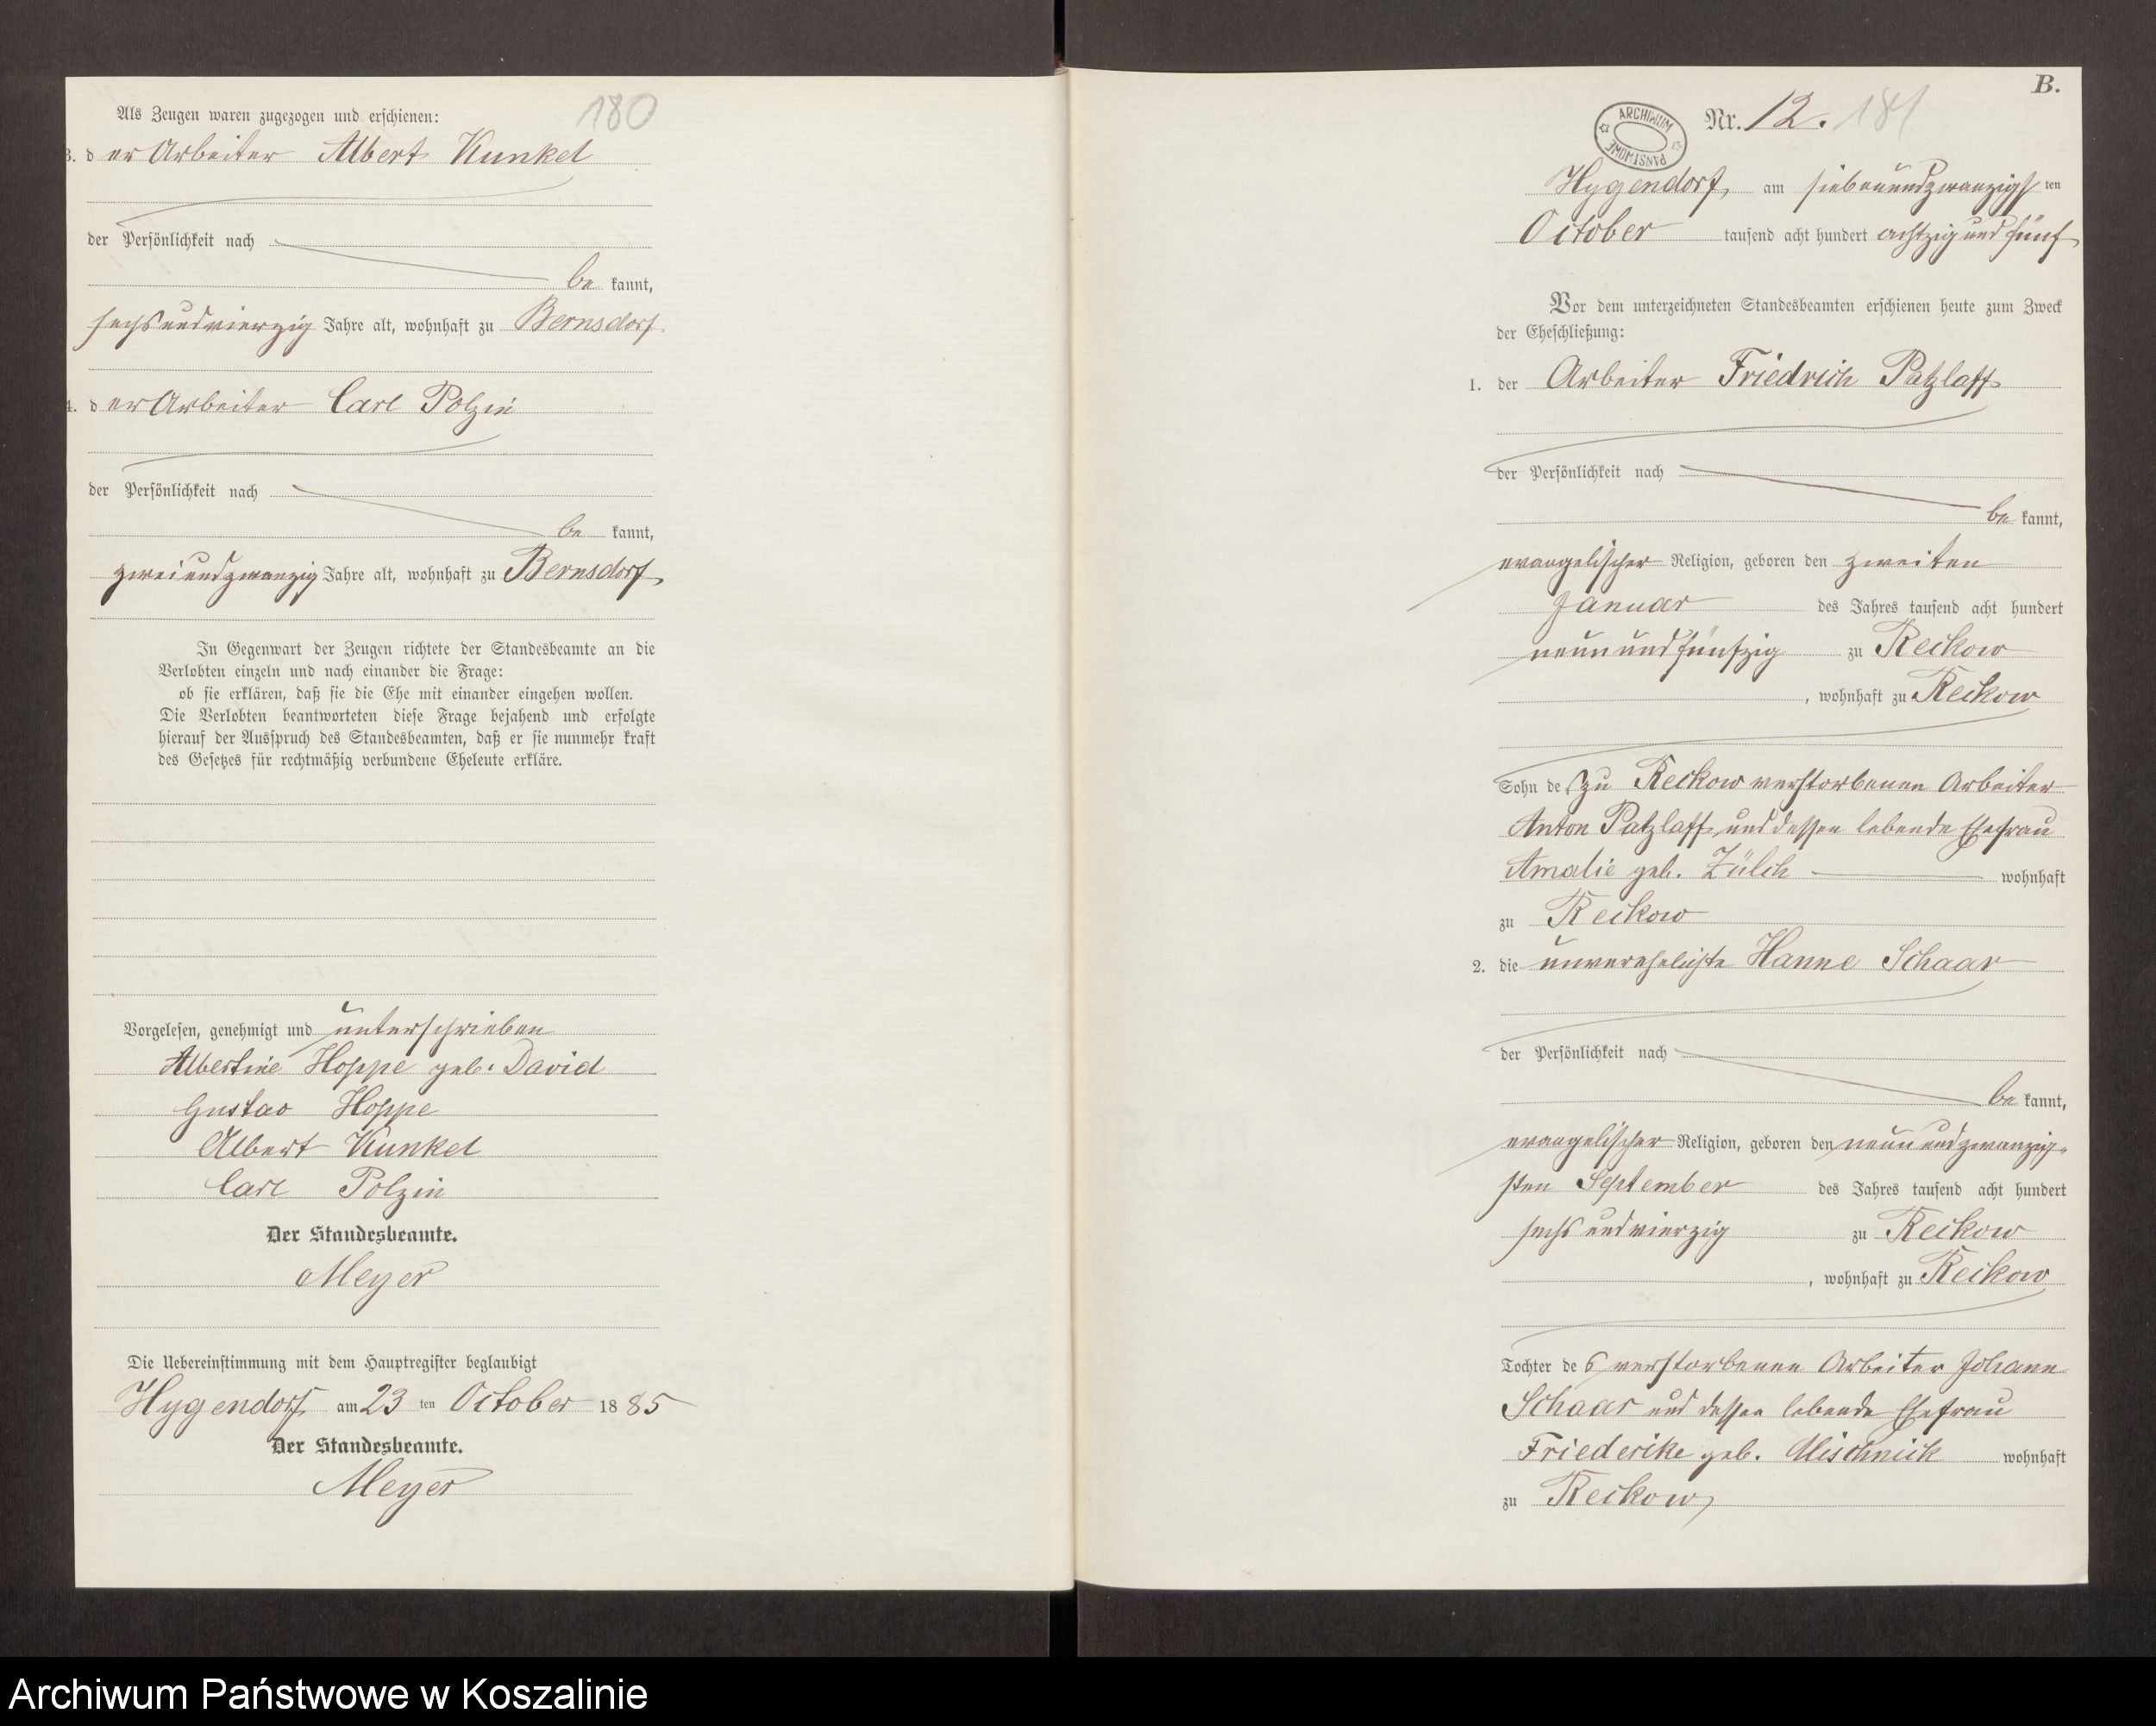 180
Als Zeugen waren zugezogen und erschienen:
3. der Arbeiter Albert Kunkel
der Persönlichkeit nach
be kannt,
sechsundvierzig Jahre alt, wohnhaft zu Bernsdorf
4. der Arbeiter Carl Polzin
der Persönlichkeit nach
be kannt,
zweiundzwanzig Jahre alt, wohnhaft zu Bernsdorf,
In Gegenwart der Zeugen richtete der Standesbeamte an die
Verlobten einzeln und nach einander die Frage:
ob sie erklären, daß sie die Ehe mit einander eingehen wollen.
Die Verlobten beantworteten diese Frage bejahend und erfolgte
hierauf der Ausspruch des Standesbeamten, daß er sie nunmehr kraft
des Gesetzes für rechtmäßig verbundene Eheleute erkläre.
Vorgelesen, genehmigt und unterschrieben
Albertine Hoppe geb. David
Gustav Hoppe
Albert Kunkel
Carl Polzin
Der Standesbeamte.
Meyer
Die Uebereinstimmung mit dem Hauptregister beglaubigt
Hygendorf am 23 ten October 1885
Der Standesbeamte.
Meyer
B.
ARCHIWUM PAŃSTWOWE
Nr. 12. 181
Hygendorf, am siebenundzwanzigsten
October tausend acht hundert achtzig und fünf
Vor dem unterzeichneten Standesbeamten erschienen heute zum Zweck
der Eheschließung:
1. der Arbeiter Friedrich Patzlaff
der Persönlichkeit nach
be kannt,
evangelischer Religion, geboren den zweiten
Januar des Jahres tausend acht hundert
neun und fünfzig zu Reckow
, wohnhaft zu Reckow
Sohn des zu Reckow verstorbenen Arbeiter
Anton Patzlaff und dessen lebende Ehefrau
Amalie geb. Zülch wohnhaft
zu Reckow
2. die unverehelichte Hanne Schaar
der Persönlichkeit nach
be kannt,
evangelischer Religion, geboren den neun und zwanzig-
sten September des Jahres tausend acht hundert
sechs und vierzig zu Reckow
, wohnhaft zu Reckow
Tochter des verstorbenen Arbeiter Johann
Schaar und dessen lebende Ehefrau
Friederike geb. Mischnick wohnhaft
zu Reckow,
Archiwum Państwowe w Koszalinie